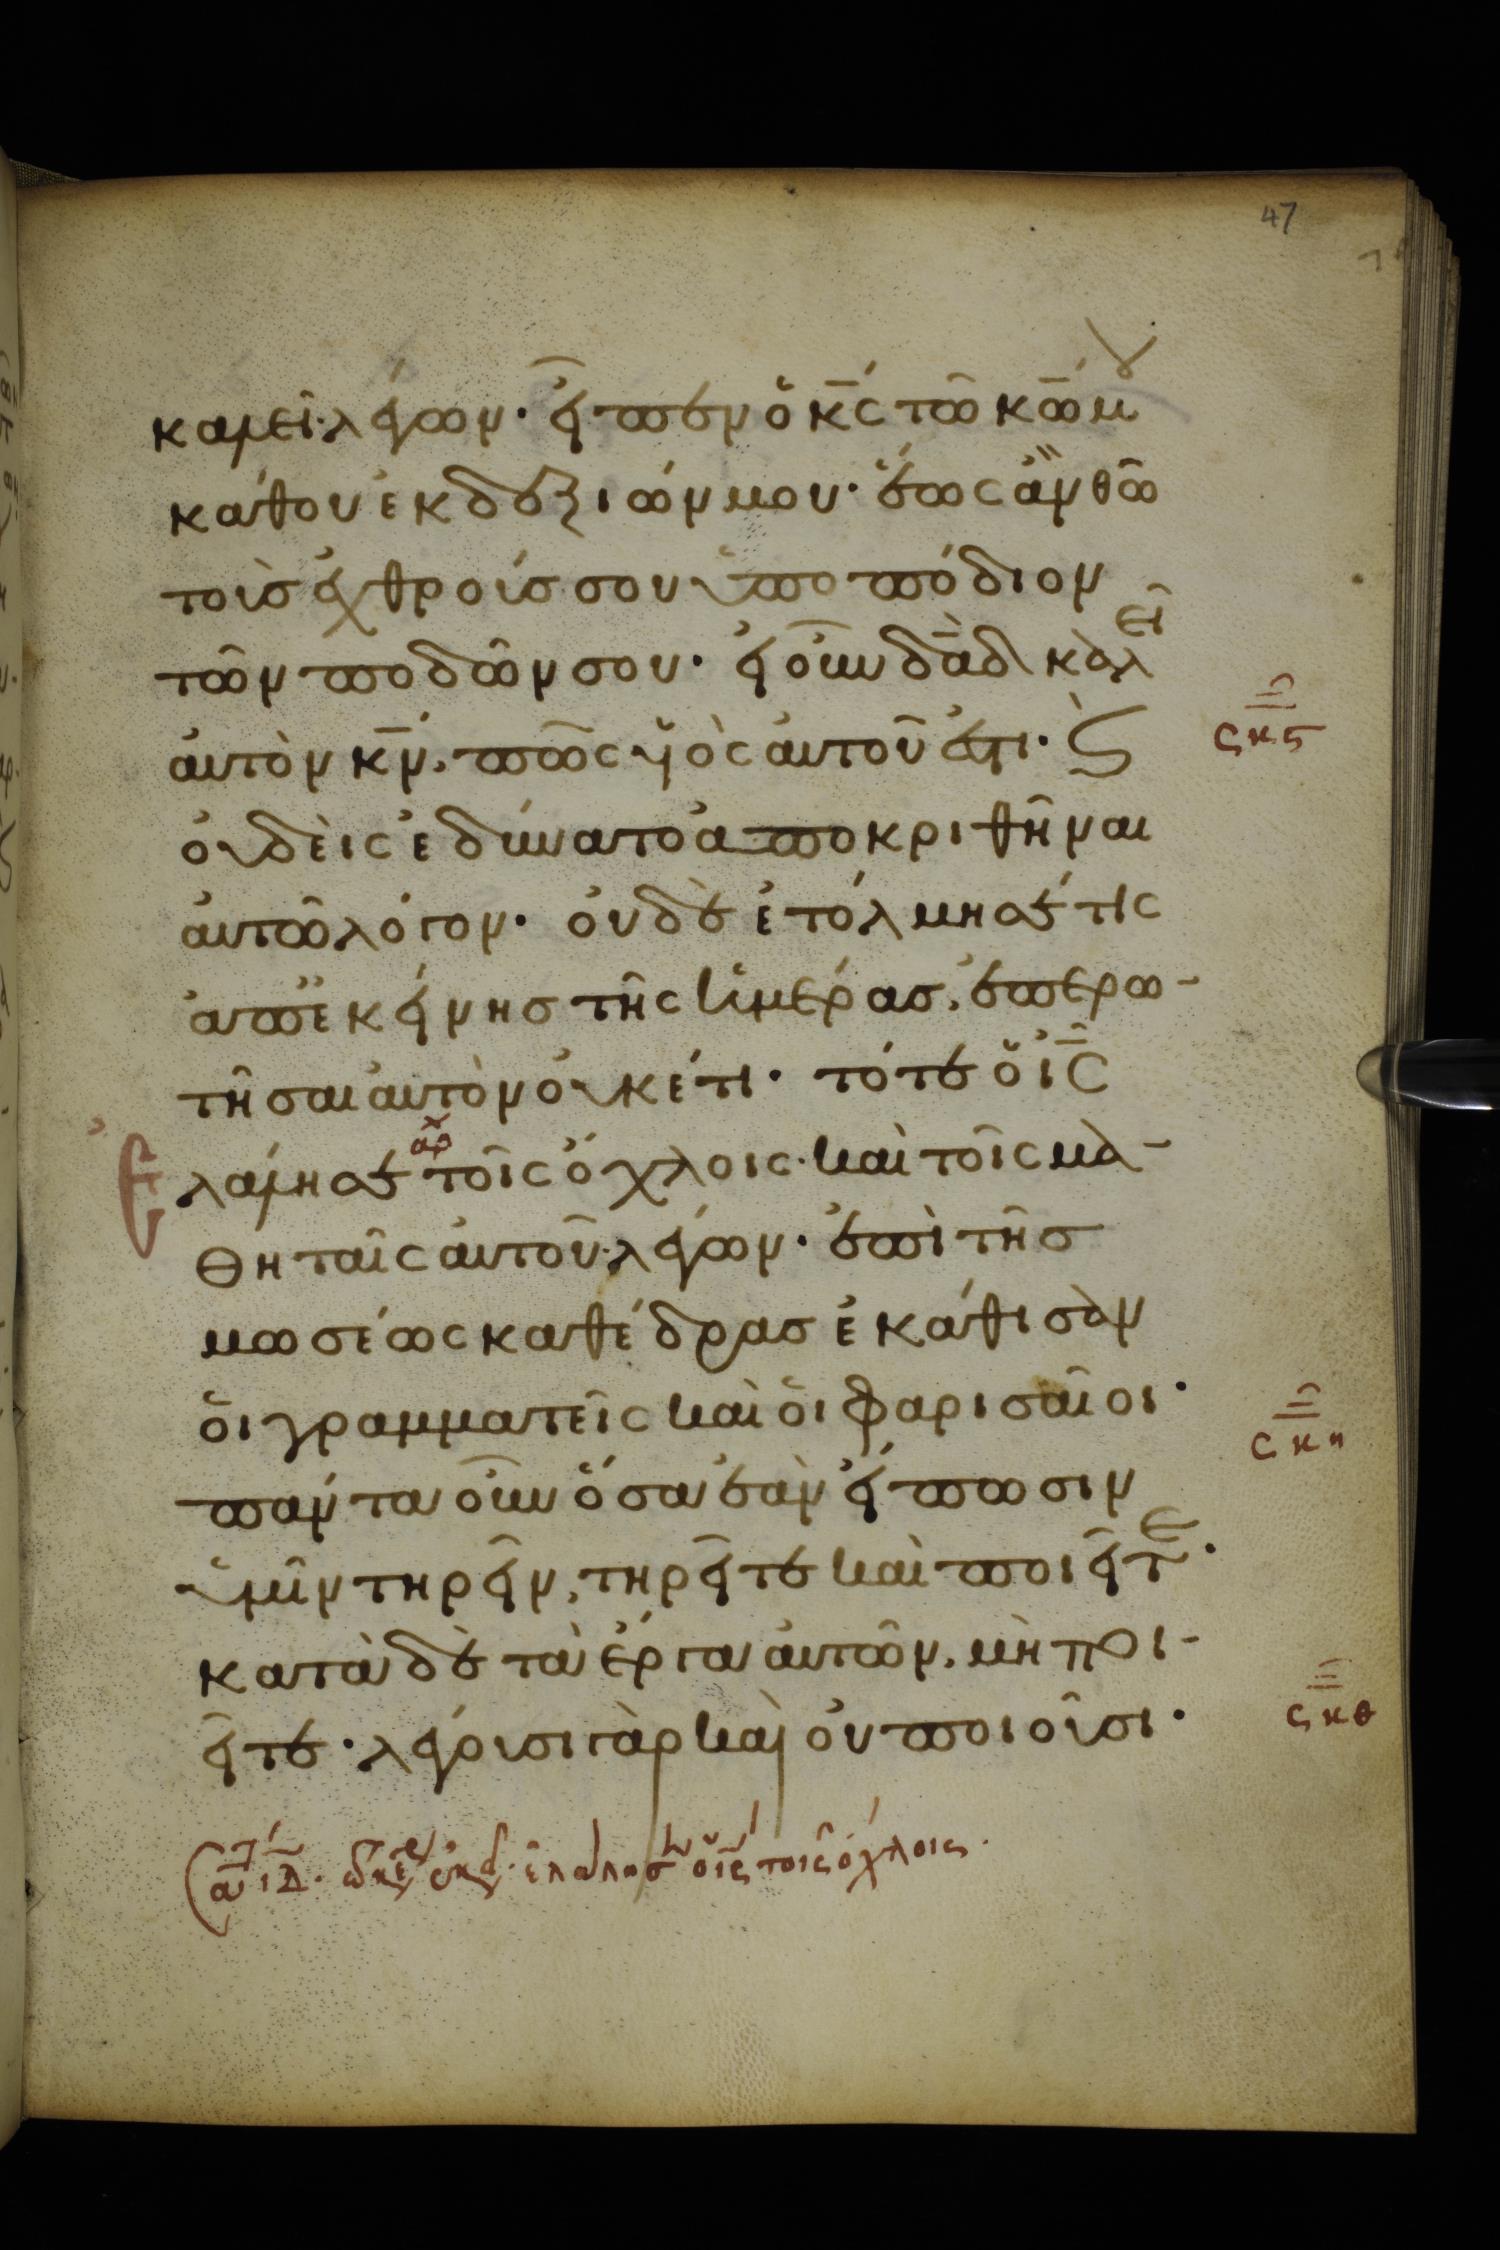 47
καλεῖ· λέγων· εἶπεν ὁ κ̅ς̅ τῶ κ̅ω̅ μου
κάθου ἐκ δεξιῶν μου· ἕως ἂν θῶ
τοὺς ἐχθρούς σου ὑποπόδιον
τῶν ποδῶν σου· εἰ οὖν δ̅α̅δ̅ καλεῖ
αὐτὸν κ̅ν̅, πῶς υἱὸς αὐτοῦ ἐστι· Ϛ
οὐδεὶς ἐδύνατο ἀποκριθῆναι
αὐτῶ λόγον· οὐδὲ ἐτόλμησέ τις
ἀπ' ἐκείνης τῆς ἡμέρας, ἐπερω-
τῆσαι αὐτὸν οὐκέτι· τότε ὁ ι̅ς̅
ἐλάλησε τοῖς ὄχλοις· καὶ τοῖς μα-
θηταῖς αὐτοῦ· λέγων· ἐπὶ τῆς
μωσέως καθέδρας ἐκάθισαν
οἱ γραμματεῖς καὶ οἱ φαρισαῖοι·
πάντα οὖν ὅσα ἐὰν εἴπωσιν
ὑμῖν τηρεῖν, τηρεῖτε καὶ ποιεῖτε·
κατὰ δὲ τὰ ἔργα αὐτῶν, μὴ ποι-
εῖτε· λέγουσι γὰρ καὶ οὐ ποιοῦσι·
ςκη
ςκθ
ἐλάλησεν ὁ ι̅ς̅ τοῖς ὄχλοις·